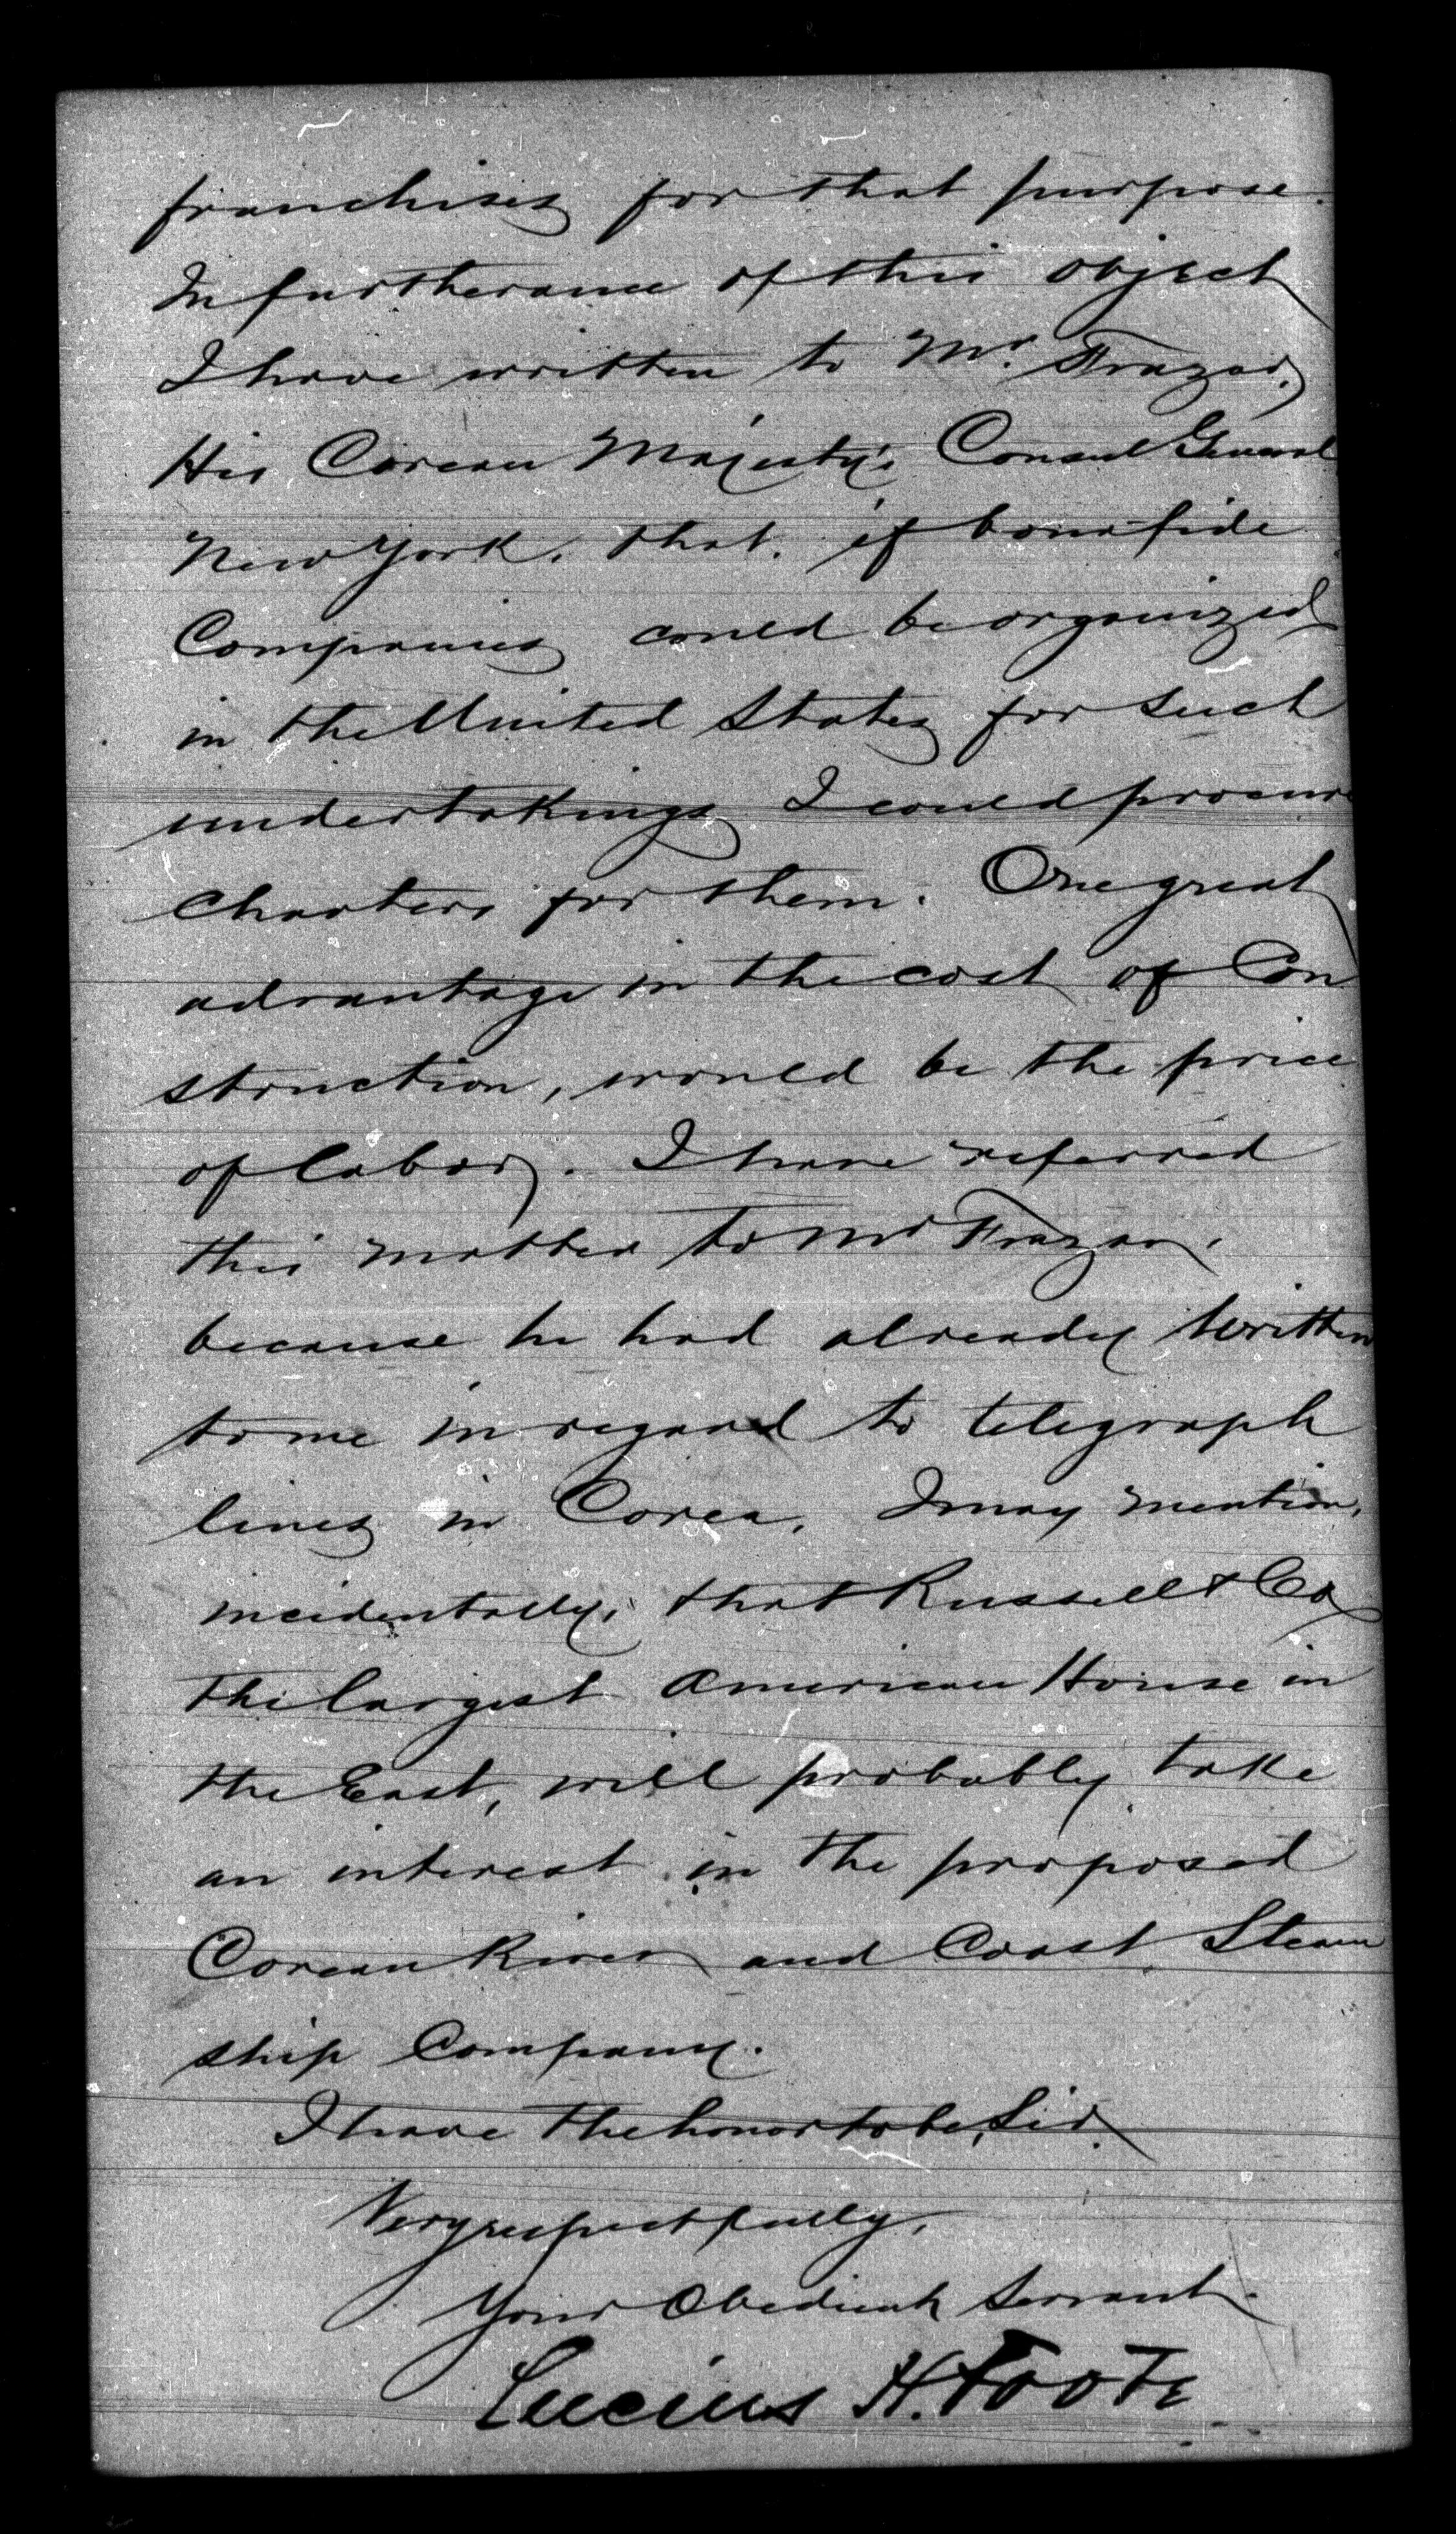 franchises for that purpose.
In furtherance of this object
I have written to Mr. Frazar,
His Corean Majesty's Consul General
New York, that, if bonafide
Companies could be organized
in the United States for such
undertakings I could procure
charters for them. One great
advantage in the cost of Con
struction, would be the price
of labor. I have referred
this matter to Mr Frazar,
because he had already written
to me in regard to telegraph
lines in Corea. I may mention,
incidentally, that Russell & Co
the largest American House in
the East, will probably take
an interest in the proposed
Corean River and Coast Steam
ship Company.
I have the honor to be, Sir,
Very respectfully,
Your Obedient Servant.
Lucius H. Foote